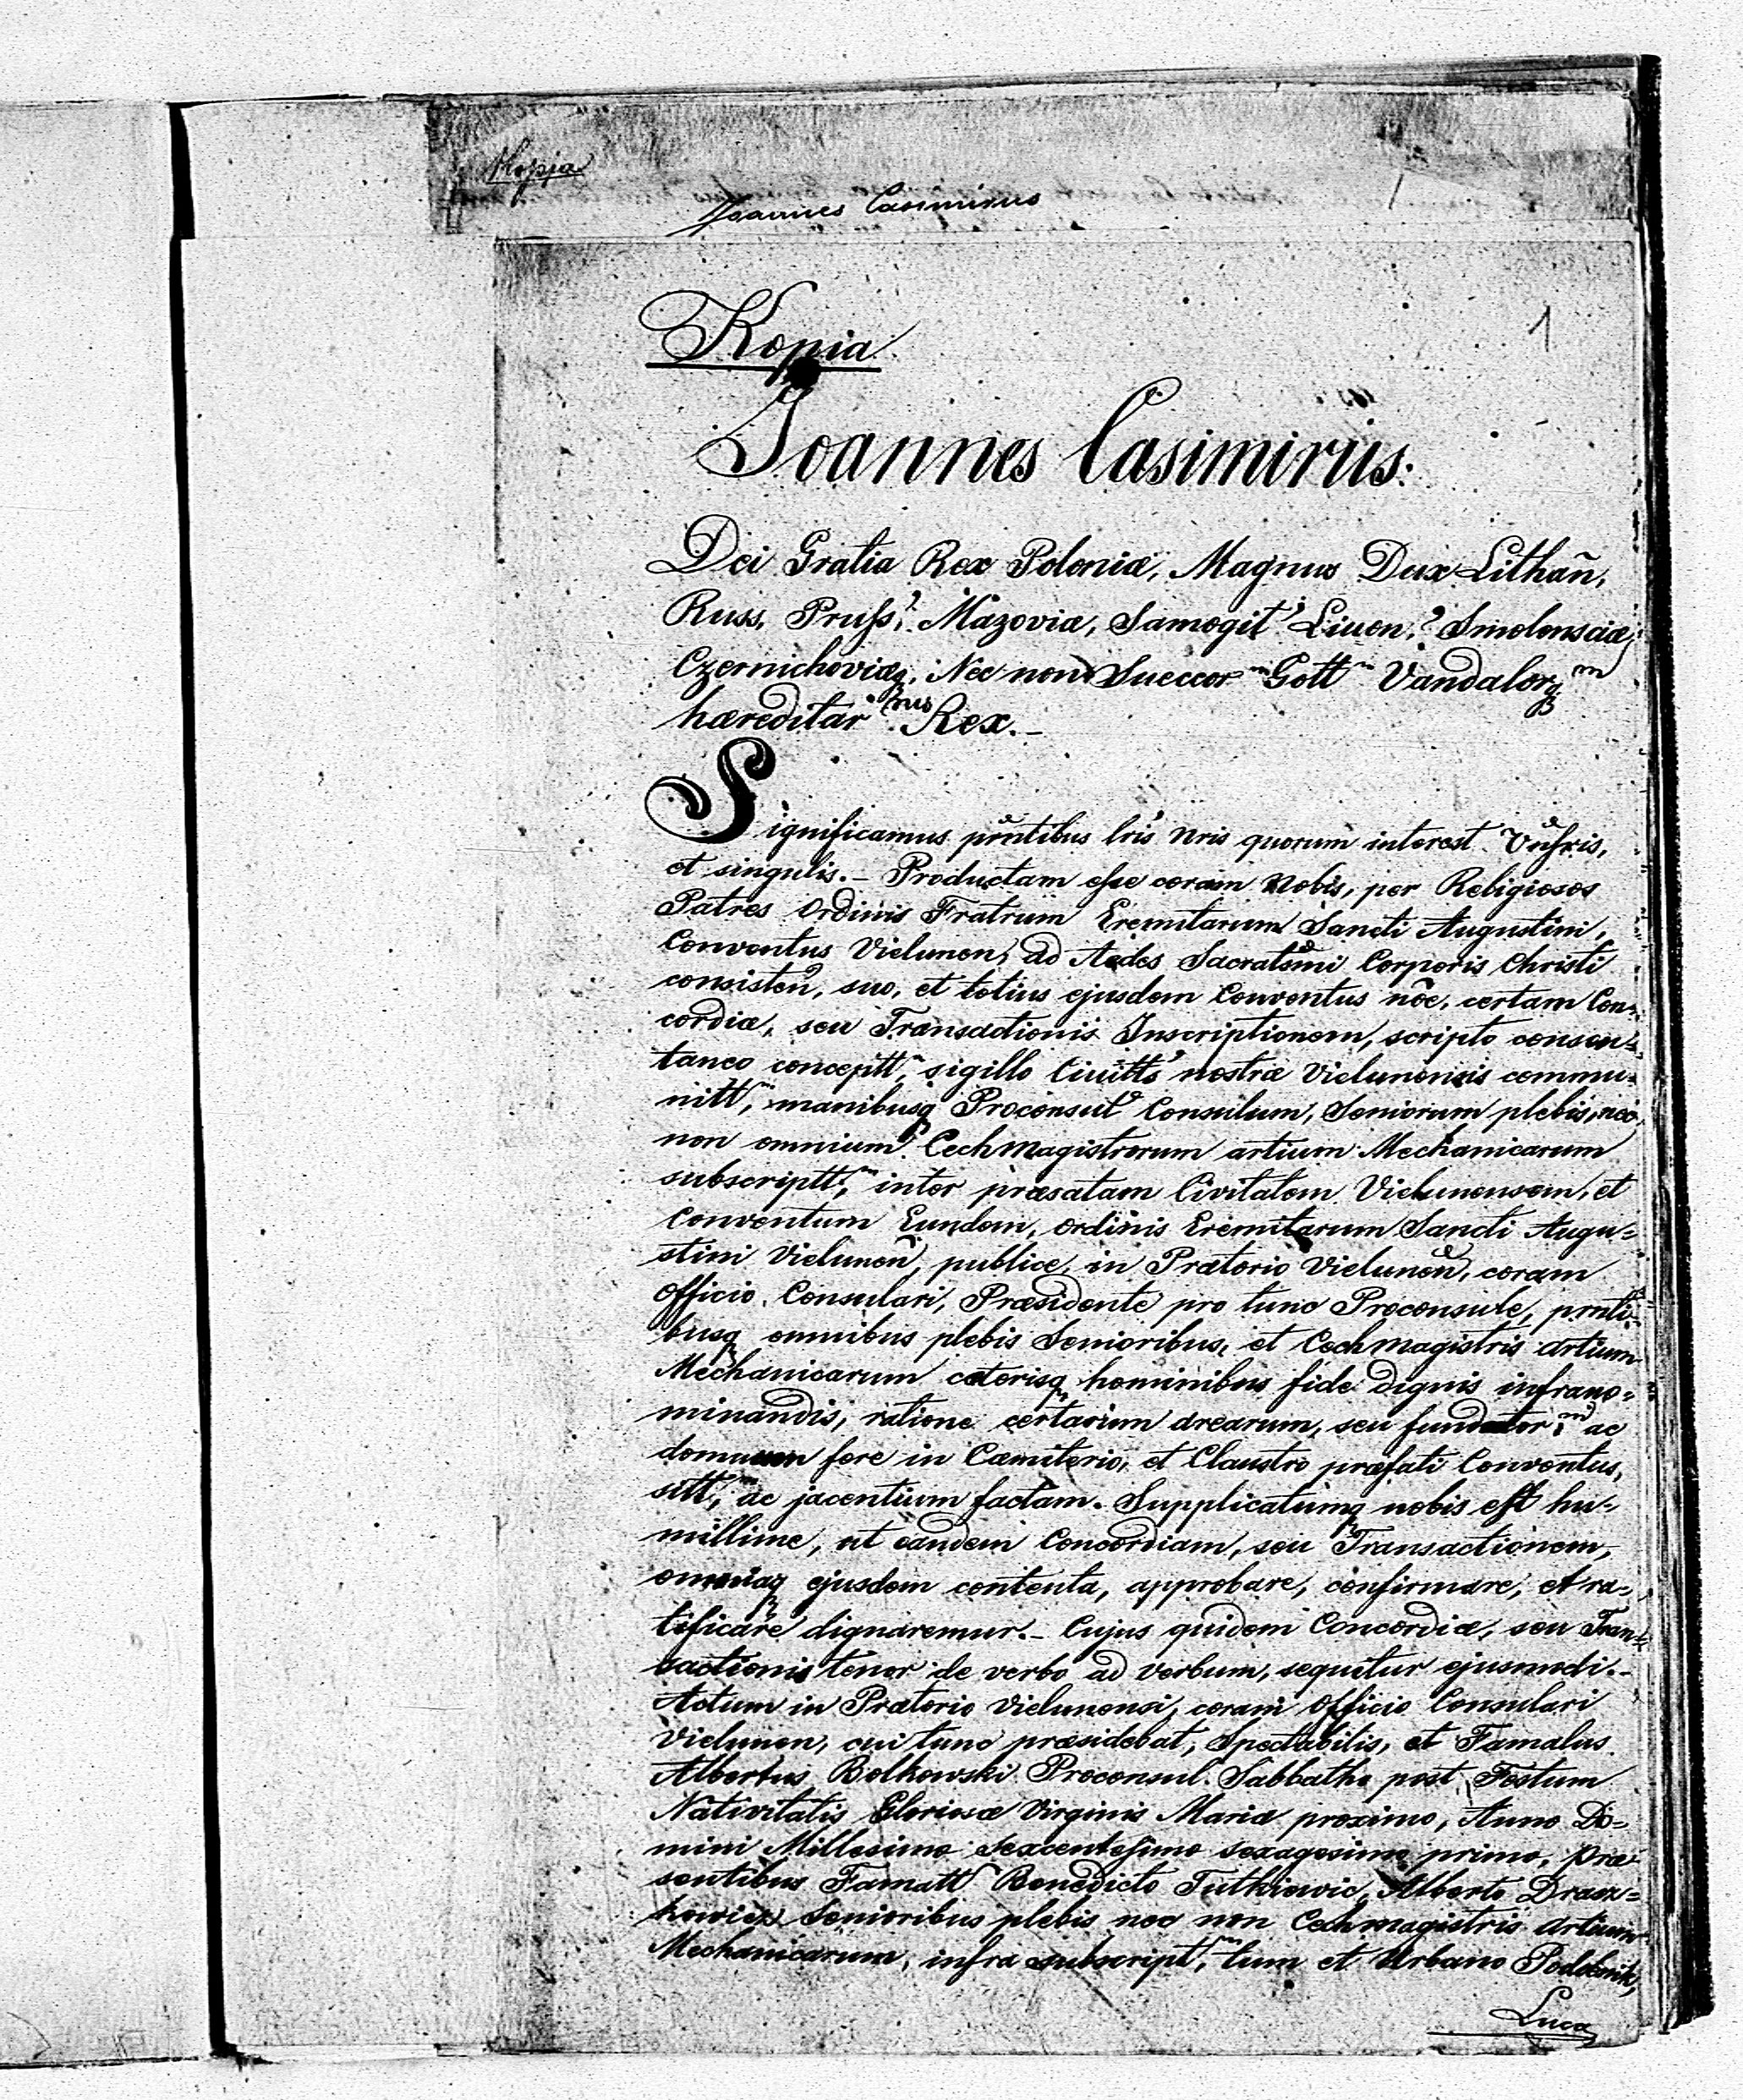 Kopja
Joannes Casimirus
1
Kopia
1
Joannes Casimirus.
Dei Gratia Rex Poloniæ, Magnus Dux Lithañ,
Russ, Pruss, Mazoviæ, Samogit, Livon, Smolensciæ,
Czernichoviæq, Nec non Sueccor m Gott m Vandalorq m
hæreditar nus Rex.—
Significamus pñtibus lris nris quorum interest Vñsris,
et singulis.— Productam esse coram Nobis, per Religiosos
Patres Ordinis Fratrum Eremitarum Sancti Augustini,
Conventus Vielunen, ad Aedes Sacratsmi Corporis Christi
consisteñ, suo, et totius ejusdem Conventus nõe, certam Con-
cordiæ, seu Transactionis Inscriptionem, scripto consen-
taneo conceptt m, sigillo Civitts nostræ Vielunensis commu-
nitt m, manibusq Proconsul Consulum, Seniorum plebis, nec
non omnium Cechmagistrorum artium Mechanicarum
subscriptt m, inter præsatam Civitatem Vielunensem, et
Conventum Eundem, ordinis Eremitarum Sancti Augu-
stini Vieluneñ, publice, in Prætorio Vieluneñ, coram
Officio Consulari, Præsidente pro tunc Proconsule, pnti-
busq omnibus plebis Senioribus, et Cechmagistris artium
Mechanicarum cæterisq hominibus fide dignis infrano-
minandis, ratione certarum arearum, seu fundator m ac
domuum fere in Cæmiterio, et Claustro præfati Conventus,
sitt m, ac jacentium factam. Supplicatumq nobis est hu-
millime, ut eandem Concordiam, seu Transactionem,
omniaq ejusdem contenta, approbare, confirmare, et ra-
tificare dignaremur.— Cujus quidem Concordiæ, seu Tran-
sactionis tenor de verbo ad verbum, sequitur ejusmodi.—
Actum in Prætorio Vielunensi, coram Officio Consulari
Vielunen, cui tunc præsidebat, Spectabilis, et Famatus
Albertus Bolkowski Proconsul. Sabbatho post Festum
Nativitatis Gloriosæ Virginis Mariæ proximo, Anno Do-
mini Millesimo sexcentesimo sexagesimo primo, Præ
sentibus Famatt Benedicto Tutkiewic, Alberto Drasz-
kowicz Senioribus plebis nec non Cechmagistris artium
Mechanicarum, infra subscript m, tum et Urbano
Luca